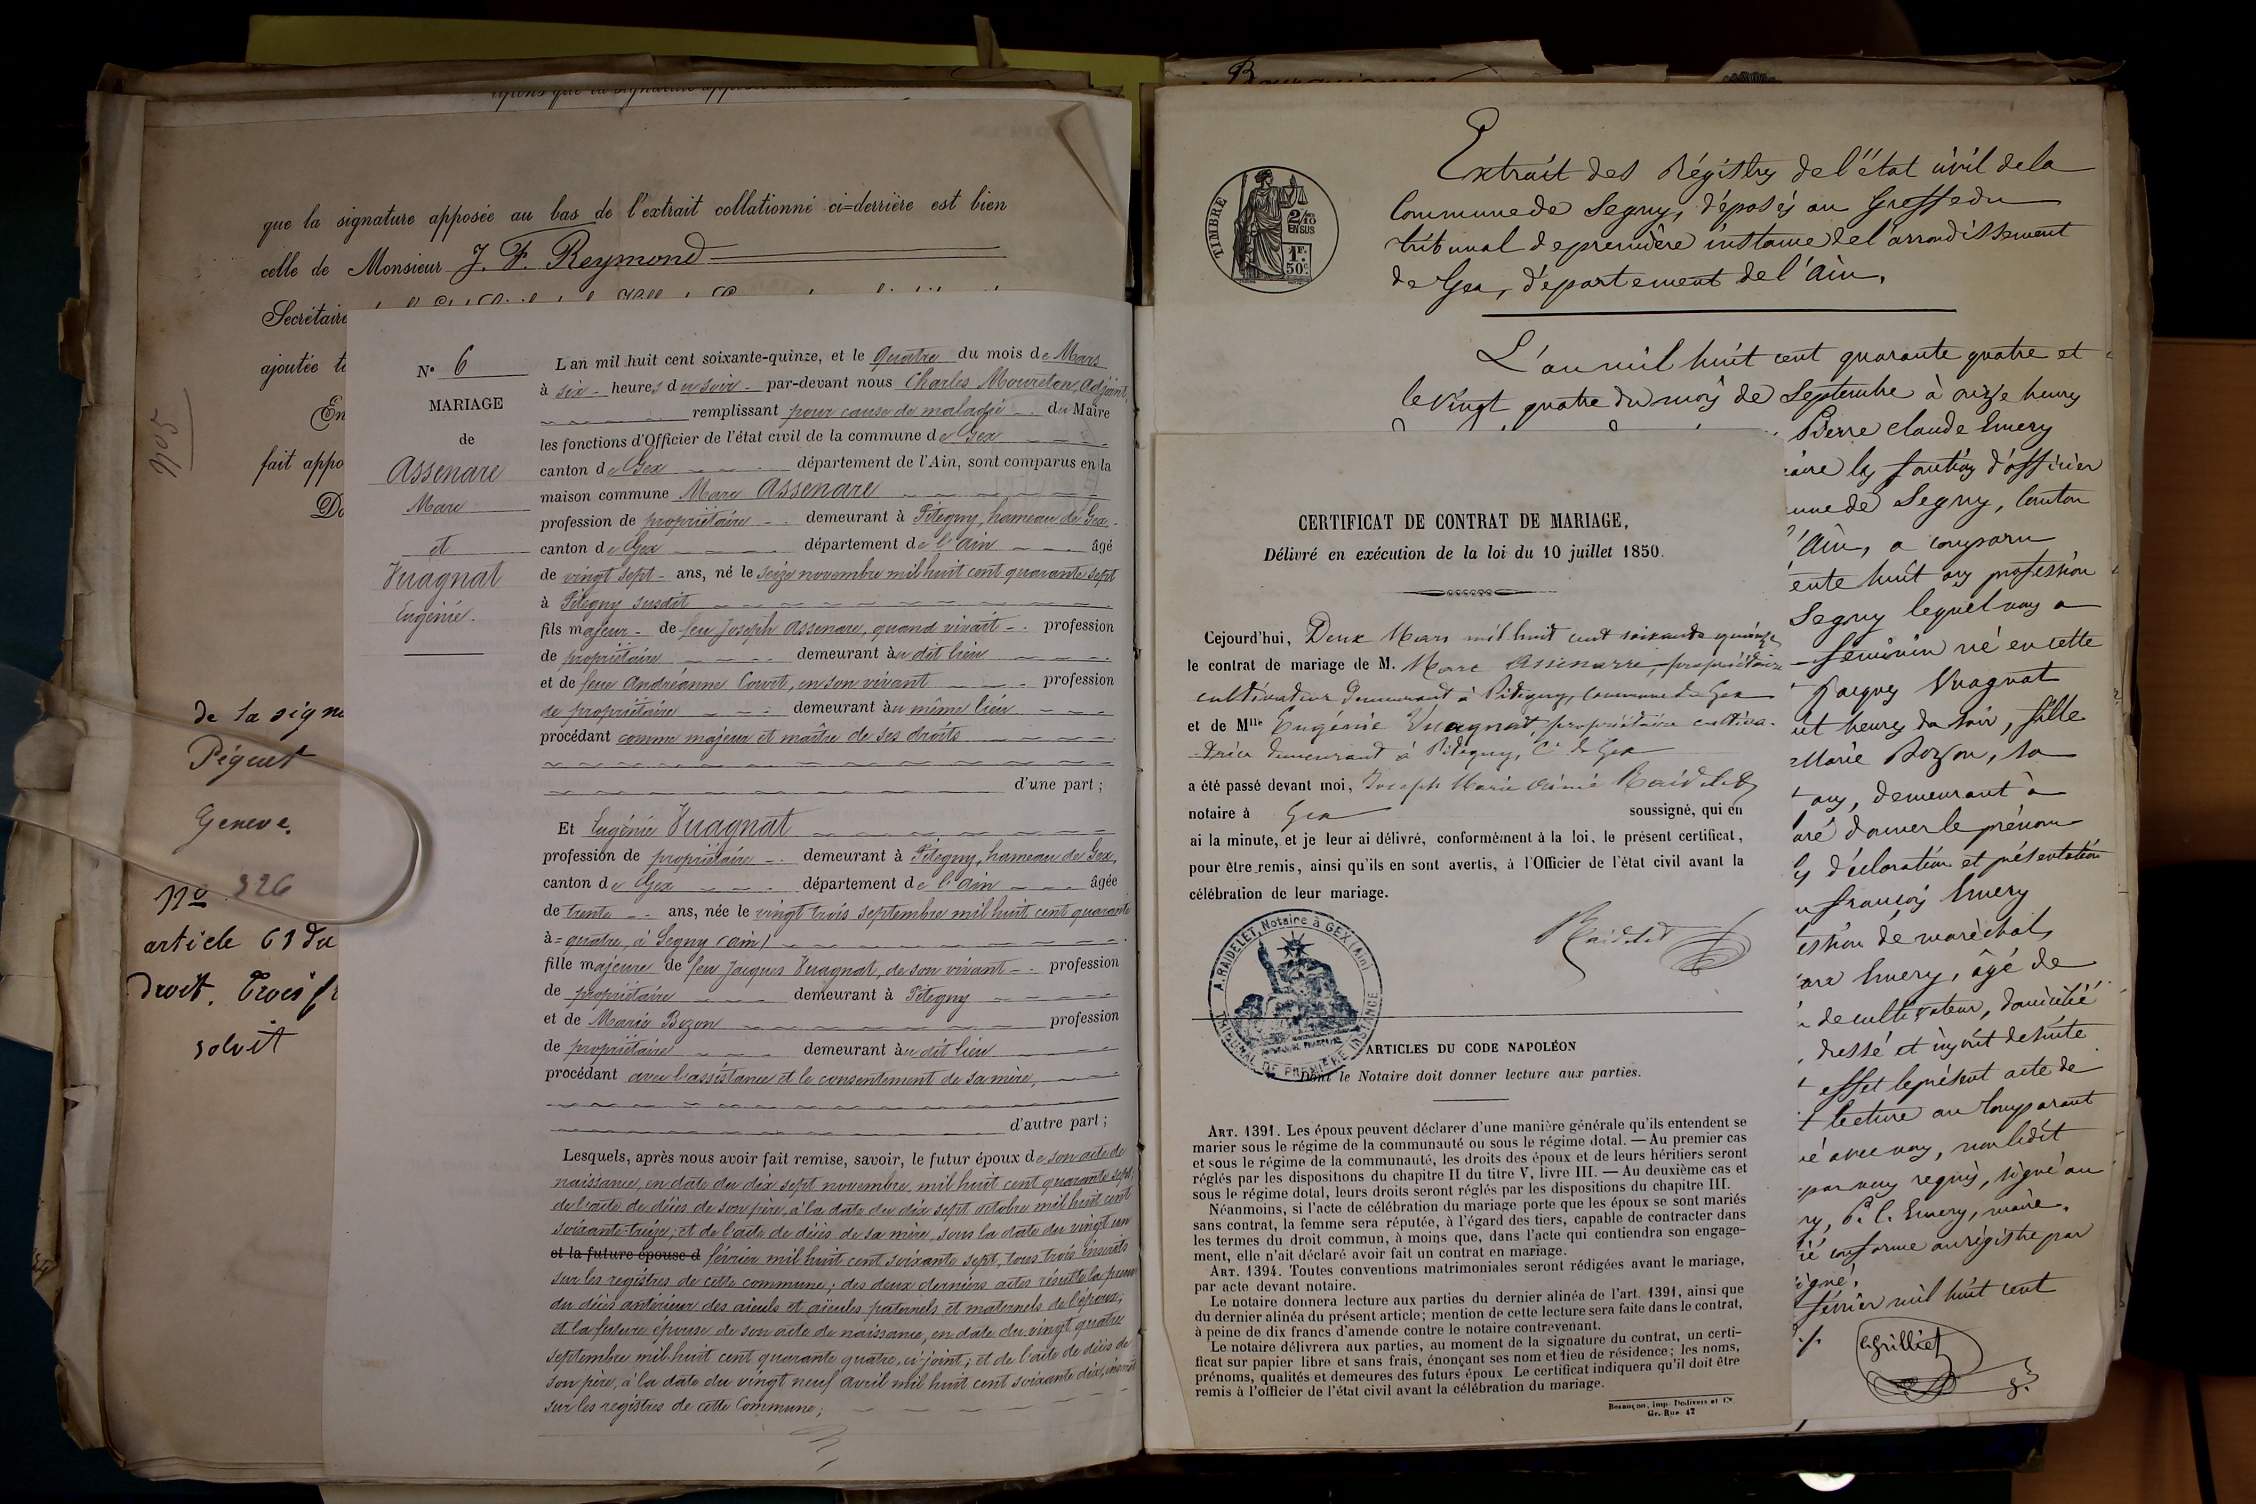 que la signature apposée au bas de l'extrait collationné ci=derrière est bien
celle de Monsieur J. F. Reymond
Secrétaire
ajoutée
En
fait appo
de la signe
Piguet
Geneve.
No 326
article 61 du
droit. Trois fr
solvit
No 6
MARIAGE
de
Assenare
Marc
et
Vuagnat
Eugénie.
L'an mil huit cent soixante-quinze, et le quatre du mois de Mars
à six heures du soir par-devant nous Charles Moureton, adjoint,
remplissant pour cause de maladie du Maire
les fonctions d'Officier de l'état civil de la commune de Gex
canton de Gex département de l'Ain, sont comparus en la
maison commune Marc Assenare
profession de propriétaire demeurant à Pitegny, hameau de Gex
canton de Gex département de l'Ain âgé
de vingt sept ans, né le seize novembre mil huit cent quarante sept
à Pitegny susdit
fils majeur de feu Joseph Assenare, quand vivait profession
de propriétaire demeurant au dit lieu
et de feue Andréanne Corvet, en son vivant profession
de propriétaire demeurant au même lieu
procédant comme majeur et maître de ses droits
d'une part;
Et Eugénie Vuagnat
profession de propriétaire demeurant à Pitegny, hameau de Gex,
canton de Gex département de l'Ain âgée
de trente ans, née le vingt trois septembre mil huit cent quarante
à=quatre, à Segny (ain)
fille majeure de feu Jacques Vuagnat, de son vivant profession
de propriétaire demeurant à Pitegny
et de Marie Bozon profession
de propriétaire demeurant au dit lieu
procédant avec l'assistance et le consentement de sa mère,
d'autre part;
Lesquels, après nous avoir fait remise, savoir, le futur époux de son acte de
naissance, en date du dix sept novembre mil huit cent quarante sept;
de l'acte de décès de son père, à la date du dix sept octobre mil huit cent
soixante-treize; et de l'acte de décès de sa mère, sous la date du vingt un
et la future épouse d février mil huit cent soixante sept, tous trois inscrits
sur les registres de cette commune; des deux derniers actes résulte la preuve
du décès antérieur des aieuls et aïeules paternels et maternels de l'époux;
et la future épouse de son acte de naissance, en date du vingt quatre
septembre mil huit cent quarante quatre, ci-joint; et de l'acte de décès de
son père, à la date du vingt neuf avril mil huit cent soixante dix, inscrit
sur les registres de cette Commune;
TIMBRE
2/10 EN SUS
1F. 50c.
Extrait des Régistres de l'état civil de la
Commune de Segny, déposés au Greffe du
tribunal de première instance de l'arrondissement
de Gex, département de l'Ain.
L'an mil huit cent quarante quatre et
le vingt quatre du mois de Septembre à onze heures
Pierre Claude Emery
les fonctions d'officier
de Segny, canton
Ain, a comparu
huit ans profession
Segny lequel nous a
féminin né en cette
Jacques Vuagnat
heures du soir, fille
Marie Bozon, sa
ans, demeurant à
donner le prénom
déclaration et présentation
françois Emery
de maréchal,
Emery, âgé de
de cultivateur, domicilié
dressé et inscrit de suite
effet le présent acte de
lecture au Comparant
avec nous, non ledit
par nous requis, signé au
P. C. Emery, maire.
conforme au régistre par
signé.
février mil huit cent
Grilliet
CERTIFICAT DE CONTRAT DE MARIAGE,
Délivré en exécution de la loi du 10 juillet 1850.
Cejourd'hui, Deux Mars mil huit cent soixante quinze
le contrat de mariage de M. Marc Assenarre, propriétaire
cultivateur demeurant à Pitegny, commune de Gex
et de Mlle Eugénie Vuagnat, propriétaire cultiva-
trice demeurant à Pitegny, Ce de Gex
a été passé devant moi, Joseph Marie Aimé Raidelet
notaire à Gex soussigné, qui en
ai la minute, et je leur ai délivré, conformément à la loi, le présent certificat,
pour être remis, ainsi qu'ils en sont avertis, à l'Officier de l'état civil avant la
célébration de leur mariage.
Raidelet
A. RAIDELET, Notaire à GEX (Ain)
TRIBUNAL DE PREMIERE INSTANCE
ARTICLES DU CODE NAPOLÉON
Dont le Notaire doit donner lecture aux parties.
ART. 1391. Les époux peuvent déclarer d'une manière générale qu'ils entendent se
marier sous le régime de la communauté ou sous le régime dotal. — Au premier cas
et sous le régime de la communauté, les droits des époux et de leurs héritiers seront
réglés par les dispositions du chapitre II du titre V, livre III. — Au deuxième cas et
sous le régime dotal, leurs droits seront réglés par les dispositions du chapitre III.
Néanmoins, si l'acte de célébration du mariage porte que les époux se sont mariés
sans contrat, la femme sera réputée, à l'égard des tiers, capable de contracter dans
les termes du droit commun, à moins que, dans l'acte qui contiendra son engage-
ment, elle n'ait déclaré avoir fait un contrat en mariage.
ART. 1394. Toutes conventions matrimoniales seront rédigées avant le mariage,
par acte devant notaire.
Le notaire donnera lecture aux parties du dernier alinéa de l'art. 1391, ainsi que
du dernier alinéa du présent article; mention de cette lecture sera faite dans le contrat,
à peine de dix francs d'amende contre le notaire contrevenant.
Le notaire délivrera aux parties, au moment de la signature du contrat, un certi-
ficat sur papier libre et sans frais, énonçant ses nom et lieu de résidence; les noms,
prénoms, qualités et demeures des futurs époux. Le certificat indiquera qu'il doit être
remis à l'officier de l'état civil avant la célébration du mariage.
Besançon, imp. Dodivers et Ce
Gr.-Rue 42